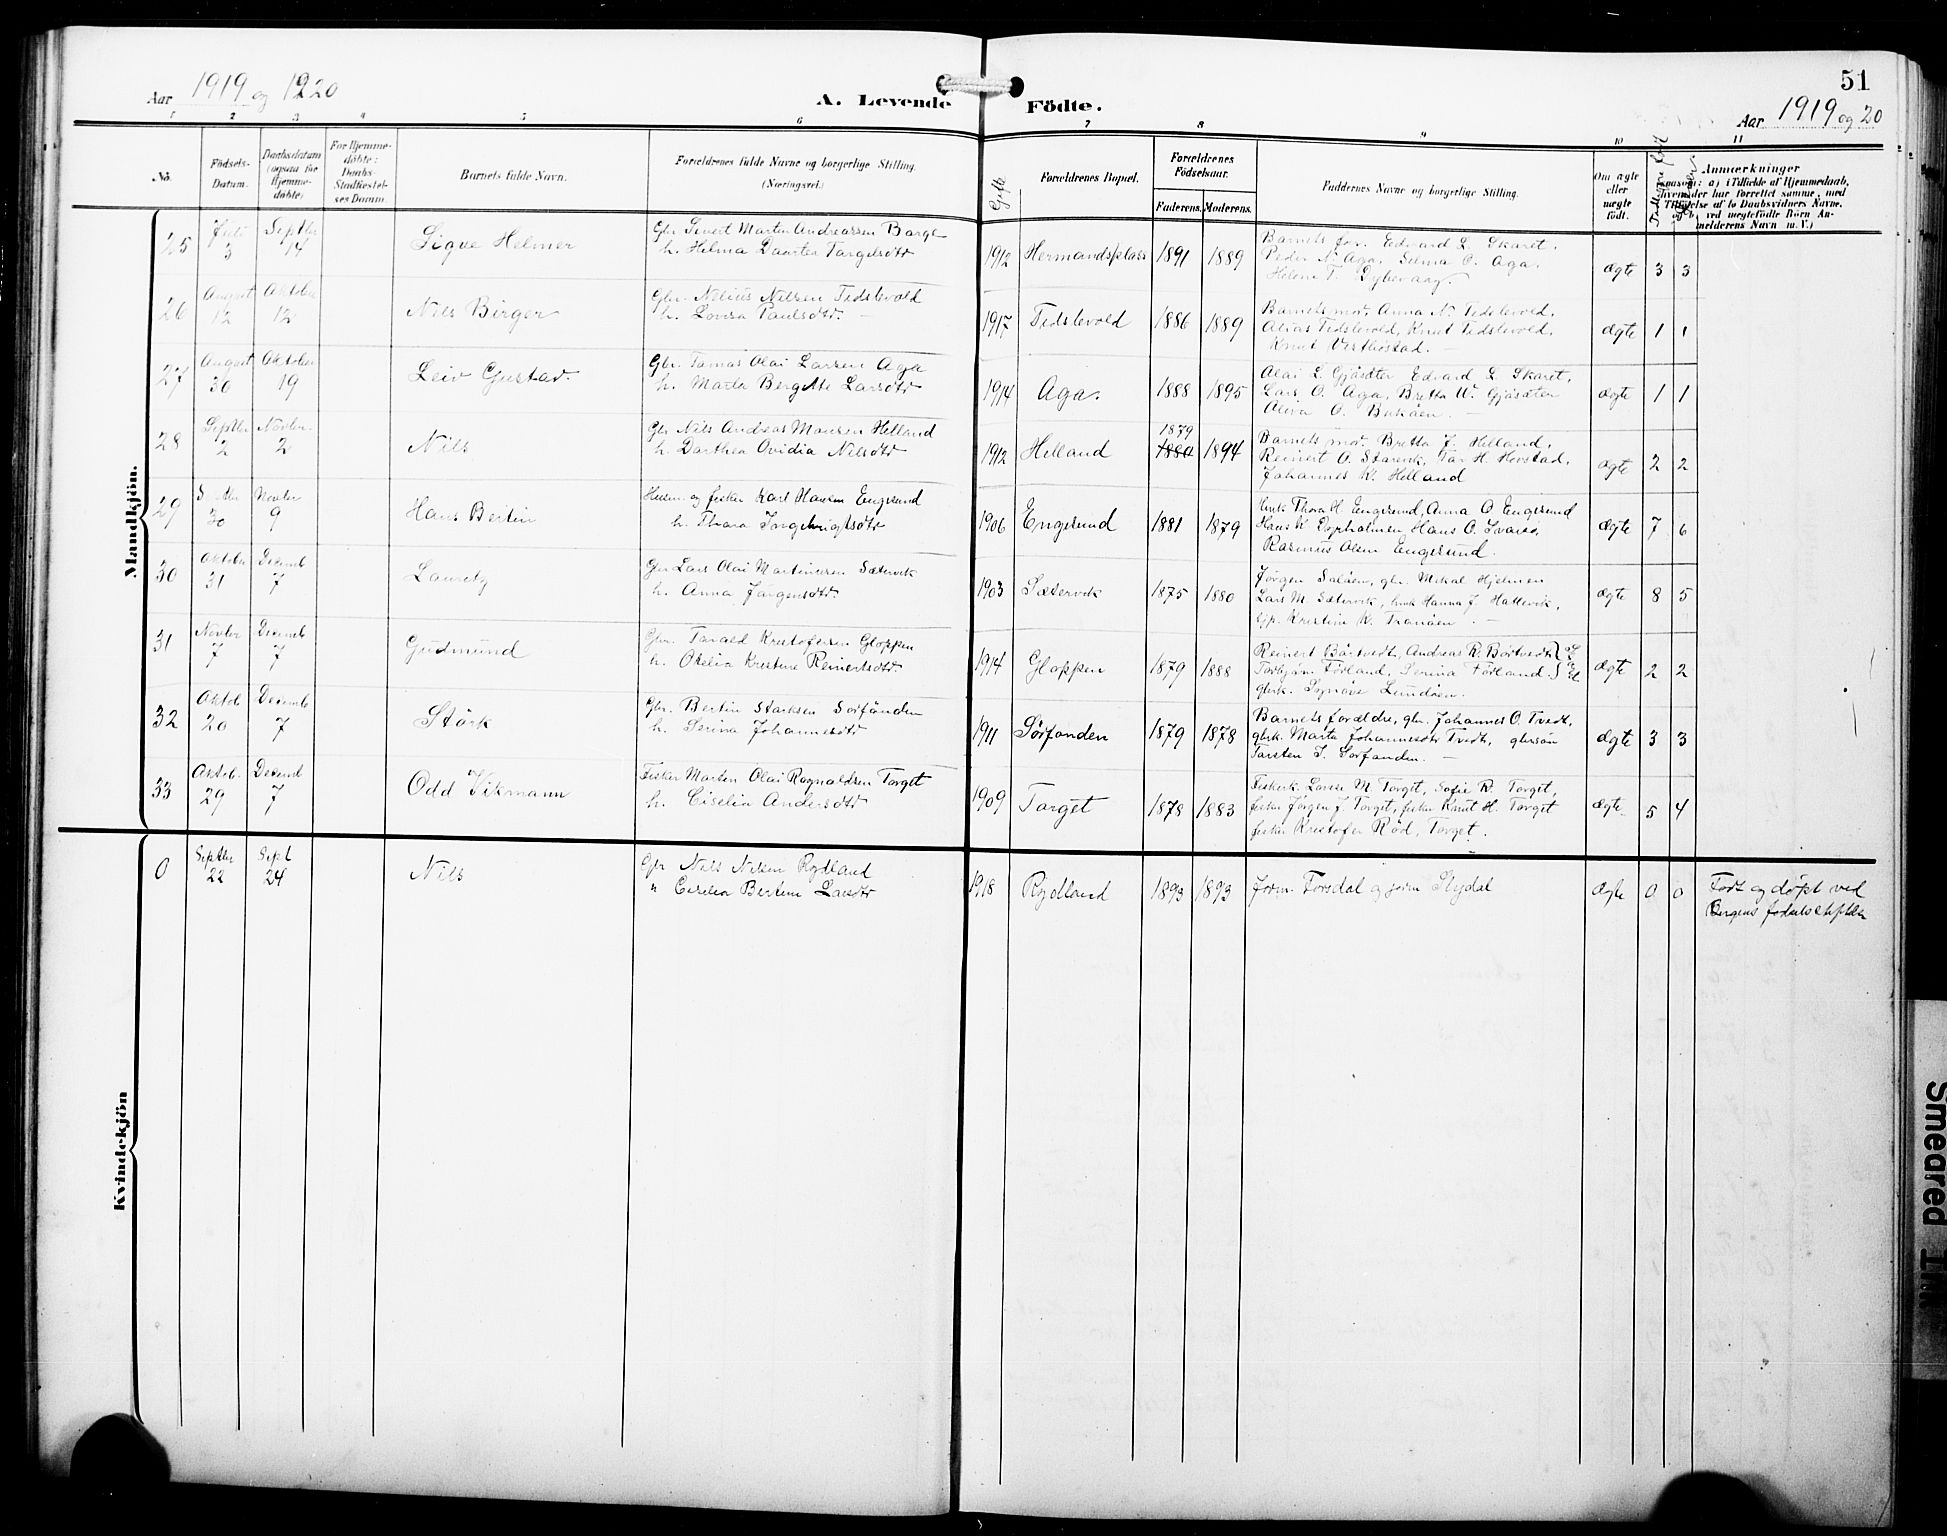 Aar 1919 og 1920
A. Levende Födte.
51
Aar 1919 og 20
1 2 3 4 5 6 7 8 9 10 11
No.
Födsels-
Datum.
Daabsdatum
(ogsaa for
Hjemme-
döbte)
For Hjemme-
döbte:
Daabs-
Stadfæstel-
ses Datum.
Barnets fulde Navn.
Forældrenes fulde Navne og borgerlige Stilling.
(Næringsvei.)
Gifte
Forældrenes Bopæl.
Forældrenes
Födselsaar.
Faderens. Moderens.
Faddernes Navne og borgerlige Stilling.
Om ægte
eller
uægte
födt.
Anmærkninger
Mandkjön.
25 Juli 3 Septbr 14 Sigve Helmer
Gbr. Sivert Martin Andreassen Barge
h. Helma Daartea Targelsdtr
1912 Hermandsplass 1891 1889
Barnets far. Edvard L. Skaret.
Peder N. Aga. Selma O. Aga.
Helene T. Dybevaag.
ægte 3 3
26 August 12 Oktober 12 Nils Birger
Gbr. Nelius Nilsen Tedslevold
h. Lovisa Paulsdtr. —
1917 Tedslevold 1886 1889
Barnets mor. Anna N. Tedslevold,
Alias Tedslevold, Knut Tedslevold,
Knut Vestbøstad. —
ægte 1 1
27 August 30 Oktober 19 Leiv Gustav.
Gbr. Tomas Olai Larsen Aga
h. Marta Bergitte Larsdtr
1914 Aga. 1888 1895
Olai L. Gjøsdter Edvard L. Skaret,
Lars O. Aga, Bretta W. Gjøsdter
Alina O. Bukøen. —
ægte 1 1
28 Septbr 2 Novbr. 2 Nils
Gbr Nils Andreas Monsen Helland
h. Darthea Ovidia Nilsdtr
1912 Helland 1879 1880 1894
Barnets mor. Bretta J. Helland,
Reinert O. Starevik, Tor H. Hovstad,
Johannes K. Helland
ægte 2 2
29 30 Novbr 9 Hans Bertin
Husm. og fisker Karl Hansen Engesund
h. Thora Ingebrigtsdtr
1906 Engesund 1881 1879
Enk Thora H. Engesund, Anna O Engesund
Hans K. Dyrholmen Hans O. Svarsø,
Rasmus Olsen Engesund.
ægte 7 6
30 Oktober 31 Decemb 7 Lauritz
Gbr Lars Olai Martinusen Sætervik
h. Anna Jørgensdtr.
1903 Sætervik 1875 1880
Jørgen Saløen, gbr. Mikal Hjelmen
Lars M. Sætervik, Enk Hanna J. Hattevik,
Gp. Kristine K. Tranøen. —
ægte 8 5
31 Novbr 7 Decemb 7 Gudmund
Gbr. Torvald Kristofersen Gloppen
h. Otelia Kristine Reinertsdtr
1914 Gloppen 1879 1888
Reinert Børtvedt, Andreas R. Børtvedt
Torbjørn Førland, Serina Førland.
gbrk. Synove Lundøen.
ægte 2 2
32 Oktob 20 Decemb 7 Störk
Gbr. Bertin Størksen Sørfonden
h. Serina Johannesdtr
1911 Sørfonden 1879 1878
Barnets forældre, gbr. Johannes O. Tvedt,
gbrk. Marta Johannesdtr Tvedt, gbrsøn
Torsten I. Sørfonden. —
ægte 3 3
33 Oktob. 29 Decemb 7 Odd Vikmann
Fisker Morten Olai Ragnaldsen Torget
h. Ciselia Andersdtr
1909 Torget 1878 1883
Fiskerk. Lovise M. Torget, Sofie R. Torget,
fisker Jørgen J. Torget, fisker Knut H. Torget
fisker Kristofer Rød, Torget.
ægte 5 4
Kvindekjön
0 Septbr 22 Sept 24 Nils
Gbr Nils Nilsen Rydland
" Cecilia Bertine Larsdtr
1918 Rydland 1893 1893
Jorm. Forsdal og jorm Slydal
ægte 0 0
Født og døpt ved
Bergens fødselsstiftelse
Smeared Ink